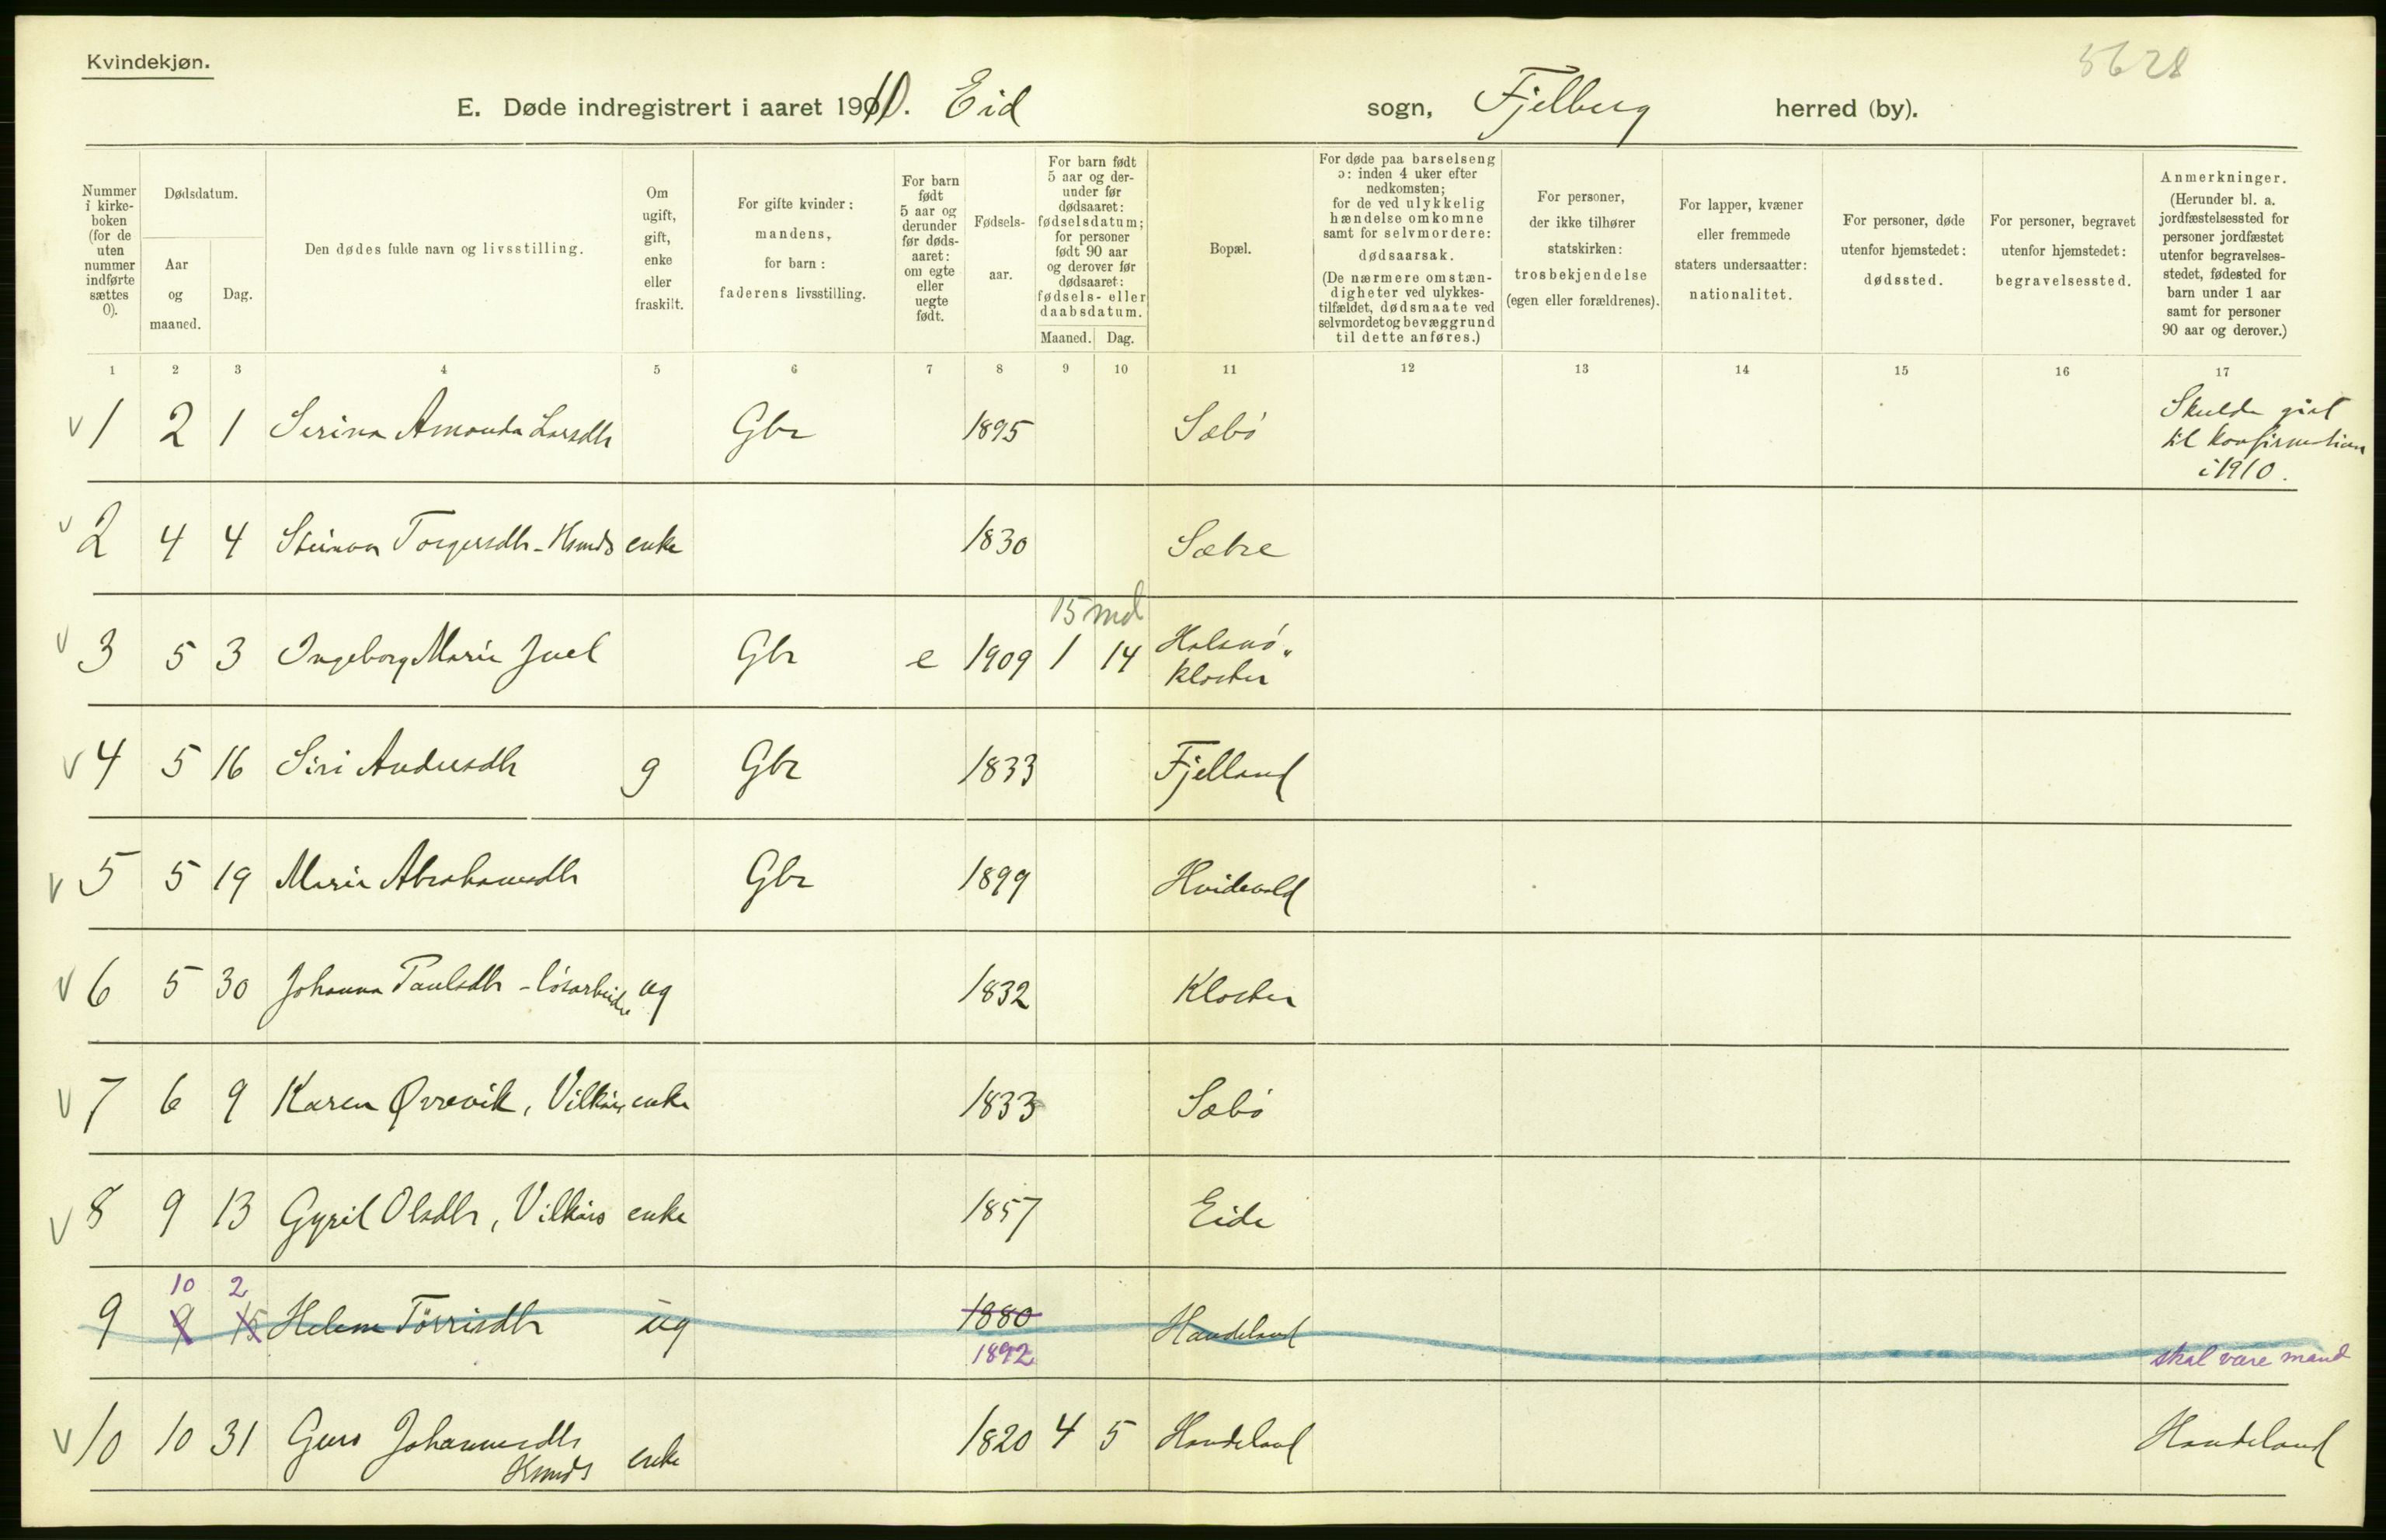 Kvindekjøn.
5628
E. Døde indregistrert i aaret 1910. Eid sogn, Fjelberg herred (by).
Nummer i kirke-boken (for de uten nummer indførte sættes 0).
Dødsdatum.
Aar og maaned.
Dag.
Den dødes fulde navn og livsstilling.
Om ugift, gift, enke eller fraskilt.
For gifte kvinder: mandens, for barn: faderens livsstilling.
For barn født 5 aar og derunder før døds-aaret: om egte eller uegte født.
Fødsels-aar.
For barn født 5 aar og der-under før dødsaaret: fødselsdatum; for personer født 90 aar og derover før dødsaaret: fødsels- eller daabsdatum.
Maaned. Dag.
Bopæl.
For døde paa barselseng ɔ: inden 4 uker efter nedkomsten; for de ved ulykkelig hændelse omkomne samt for selvmordere: dødsaarsak. (De nærmere omstæn-digheter ved ulykkes-tilfældet, dødsmaate ved selvmordet og bevæggrund til dette anføres.)
For personer, der ikke tilhører statskirken: trosbekjendelse (egen eller forældrenes).
For lapper, kvæner eller fremmede staters undersaatter: nationalitet.
For personer, døde utenfor hjemstedet: dødssted.
For personer, begravet utenfor hjemstedet: begravelsessted.
Anmerkninger. (Herunder bl. a. jordfæstelsessted for personer jordfæstet utenfor begravelses-stedet, fødested for barn under 1 aar samt for personer 90 aar og derover.)
1 2 3 4 5 6 7 8 9 10 11 12 13 14 15 16 17
v 1 2 1 Serina Amanda Larsdtr Gbr 1895 Sæbö Skulde gaat
til konfirmation
i 1910.
v 2 4 4 Steinvor Torgersdtr - Hsmds enke 1830 Sætre
15 md
v 3 5 3 Ingeborg Marie Juel Gbr e 1909 1 14 Halsnö-
kloster
v 4 5 16 Siri Andersdtr g Gbr 1833 Fjelland
v 5 5 19 Marie Abrahamsdtr Gbr 1899 Hvidevold
v 6 5 30 Johanna Paulsdtr - lösarbeider ug 1832 Kloster
v 7 6 9 Karen Ørrevik, Vilkårs enke 1833 Sæbö
v 8 9 13 Gyril Olsdtr, Vilkårs enke 1857 Eide
10 2
9 9 15 Helene Törrisdtr ug 1880 Handeland
1892 skal være mand
v 10 10 31 Guro Johannesdtr enke 1820 4 5 Handeland Handeland
Hsmds